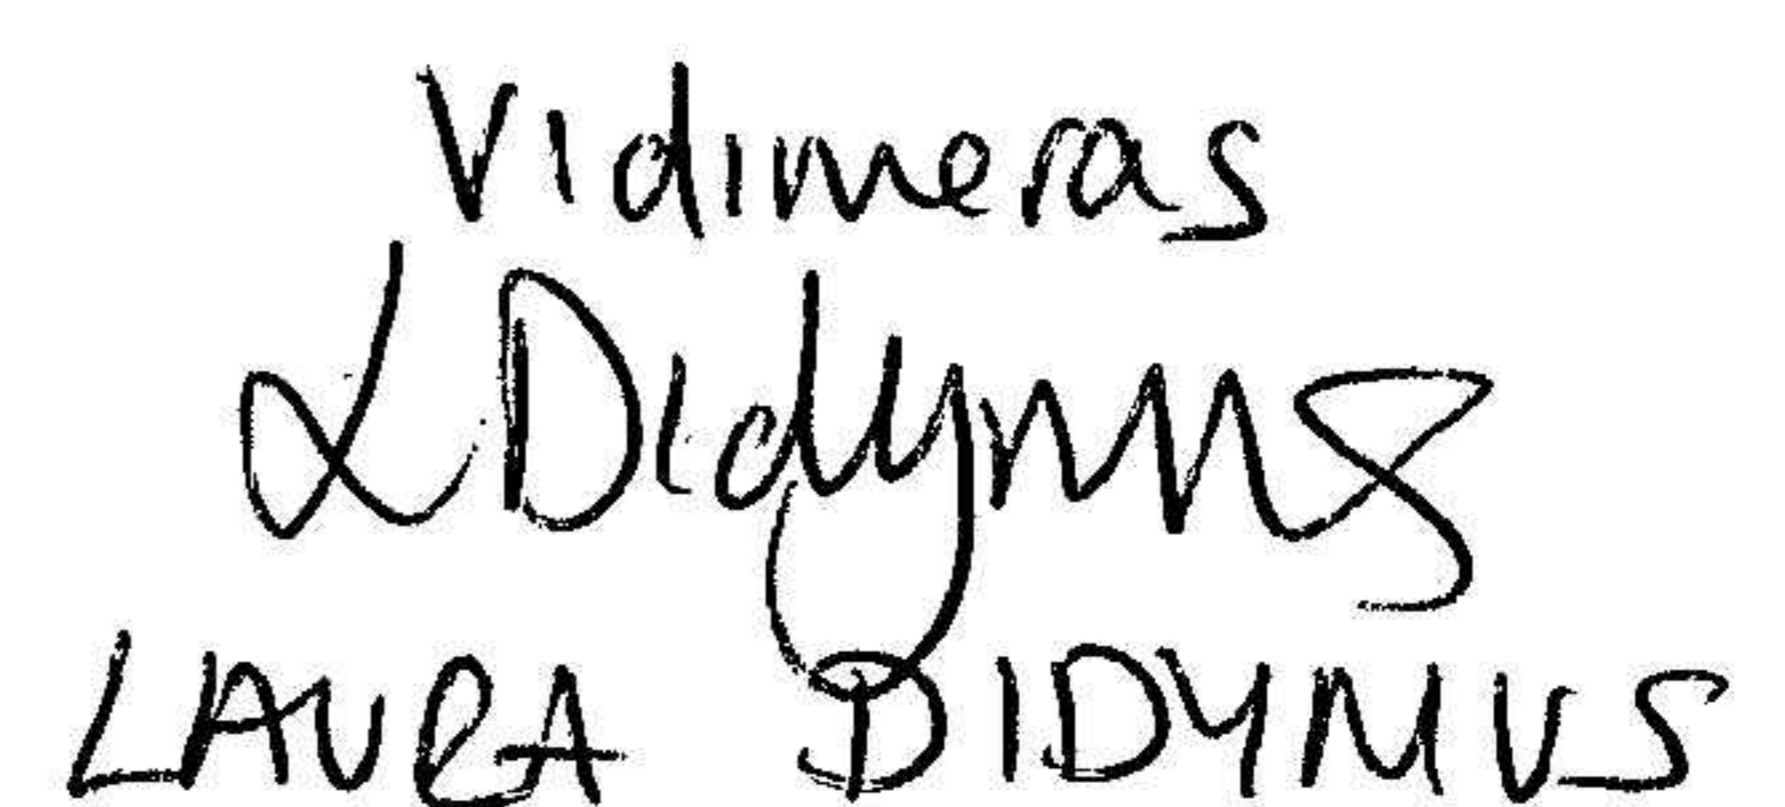 Vidimeras
L Didymus
LAURA DIDYMUS